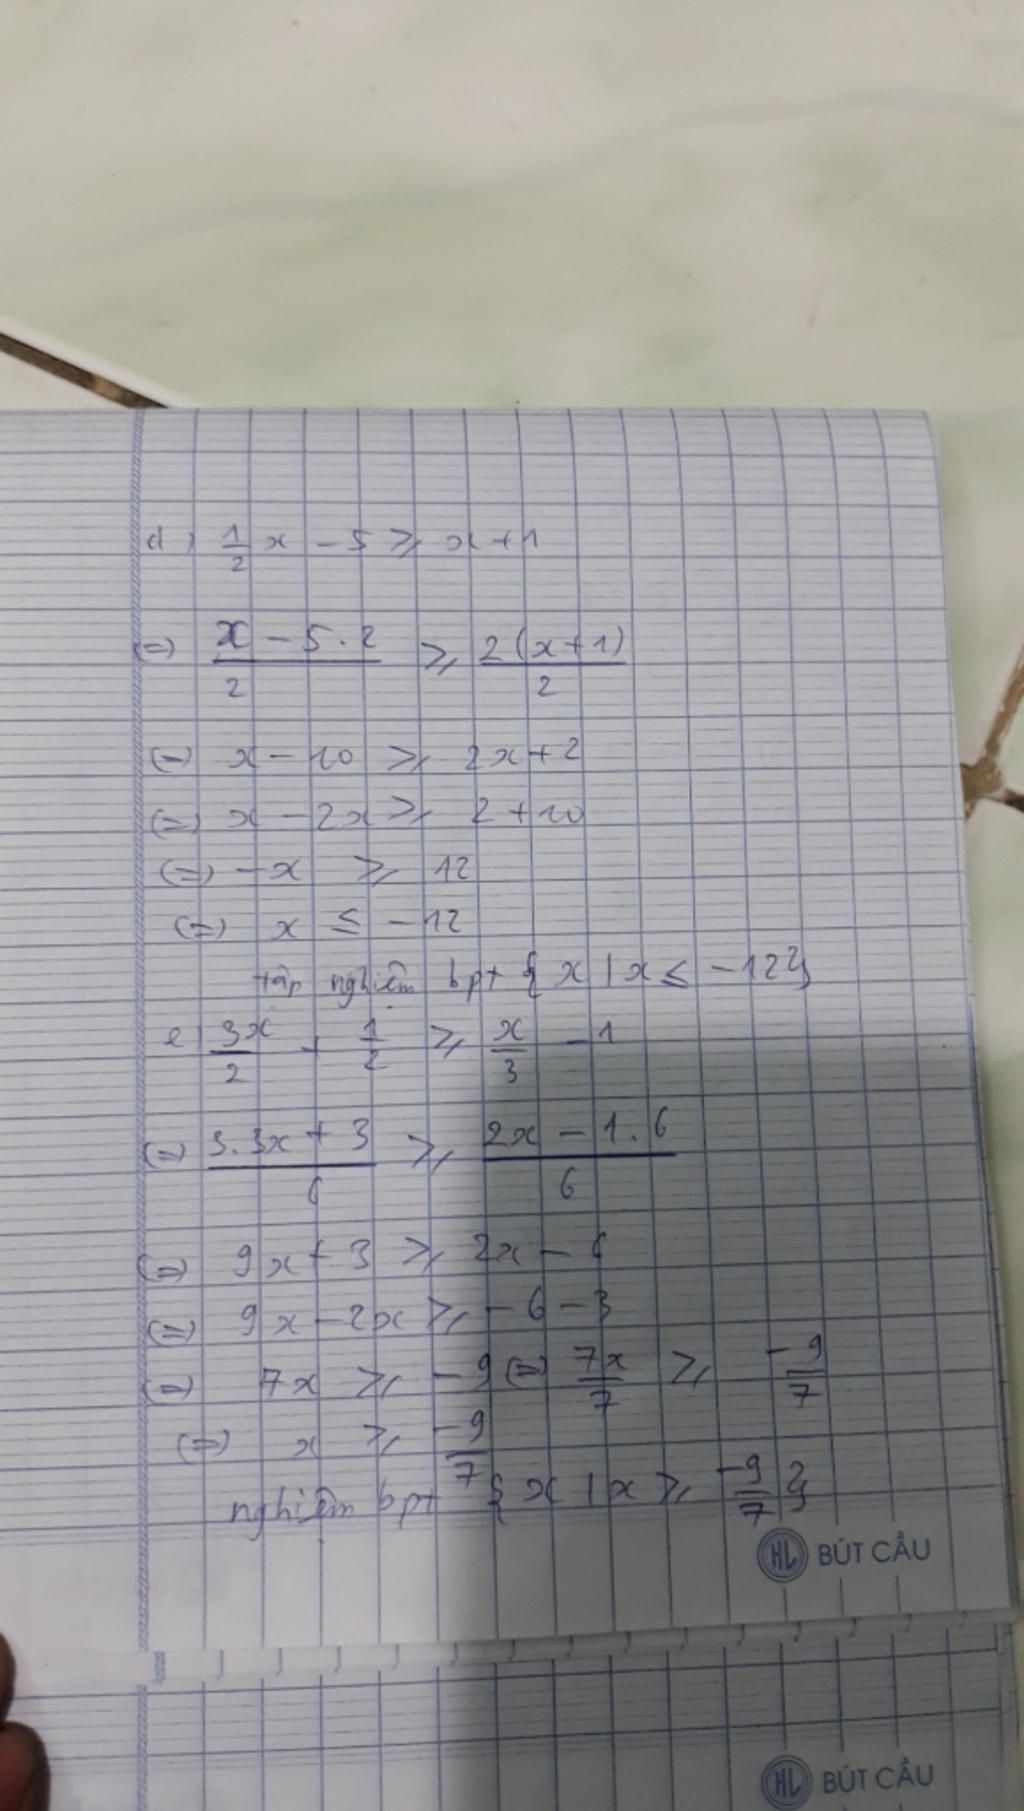 d) 1/2 x - 5 ≥ x + 1
(=) x - 5.2 / 2 ≥ 2(x+1) / 2
(=) x - 10 ≥ 2x + 2
(=) x - 2x ≥ 2 + 10
(=) -x ≥ 12
(=) x ≤ -12
tập nghiệm bpt { x | x ≤ -12 }
e) 3x/2 + 1/2 ≥ x/3 - 1
(=) 3.3x + 3 / 6 ≥ 2x - 1.6 / 6
(=) 9x + 3 ≥ 2x - 6
(=) 9x - 2x ≥ -6 - 3
(=) 7x ≥ -9 (=) 7x/7 ≥ -9/7
(=) x ≥ -9/7
nghiệm bpt { x | x ≥ -9/7 }
HL BÚT CẦU
HL BÚT CẦU